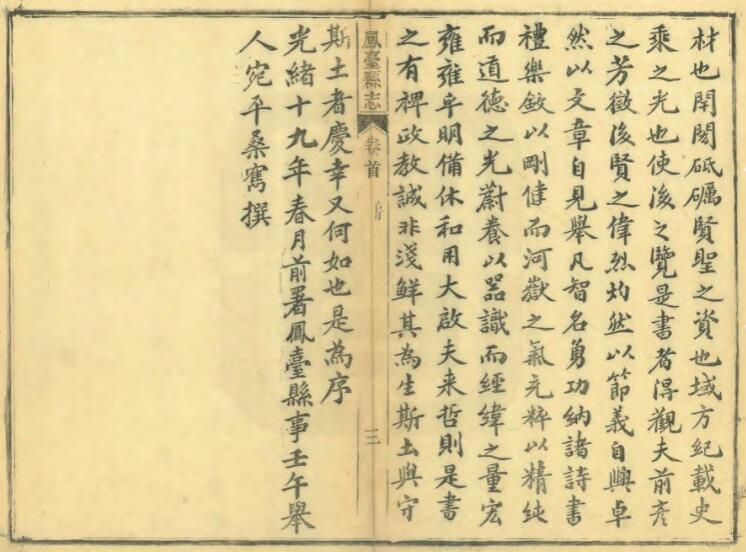 材也閈閎砥礪賢聖之資也域方紀載史
乘之光也使後之覽是書者得觀夫前彥
之芳徽後賢之偉烈灼然以節義自興卓
然以文章自見舉凡智名勇功納諸詩書
禮樂斂以剛健而河嶽之氣充粹以精純
而道德之光蔚養以器識而經緯之量宏
雍雍乎明備休和用大啟夫来哲則是書
之有裨政教誠非淺鮮其為生斯土與守
鳳臺縣志
卷首
序
三
斯土者慶幸又何如也是為序
光緒十九年春月前署鳳臺縣事壬午舉
人宛平桑寯撰